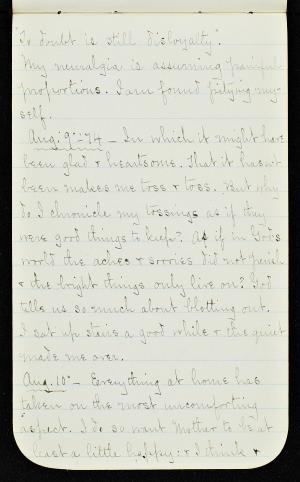 "To doubt is still disloyalty".
My neuralgia is assuming painful
proportions. I am found pitying my-
self.
Aug. 9"-74 - In which it might have
been glad & heartsome. That it hasn't
been makes me toss & toss. But why
do I chronicle my tossings as if they
were good things to keep? As if in God's
world the aches & sorries did not perish
& the bright things only live on? God
tells us so much about blotting out.
I sat up stairs a good while & the quiet
made me over.
Aug. 10" - Everything at home has
taken on the most uncomforting
aspect. I do so want Mother to be at
least a little happy: & I think &